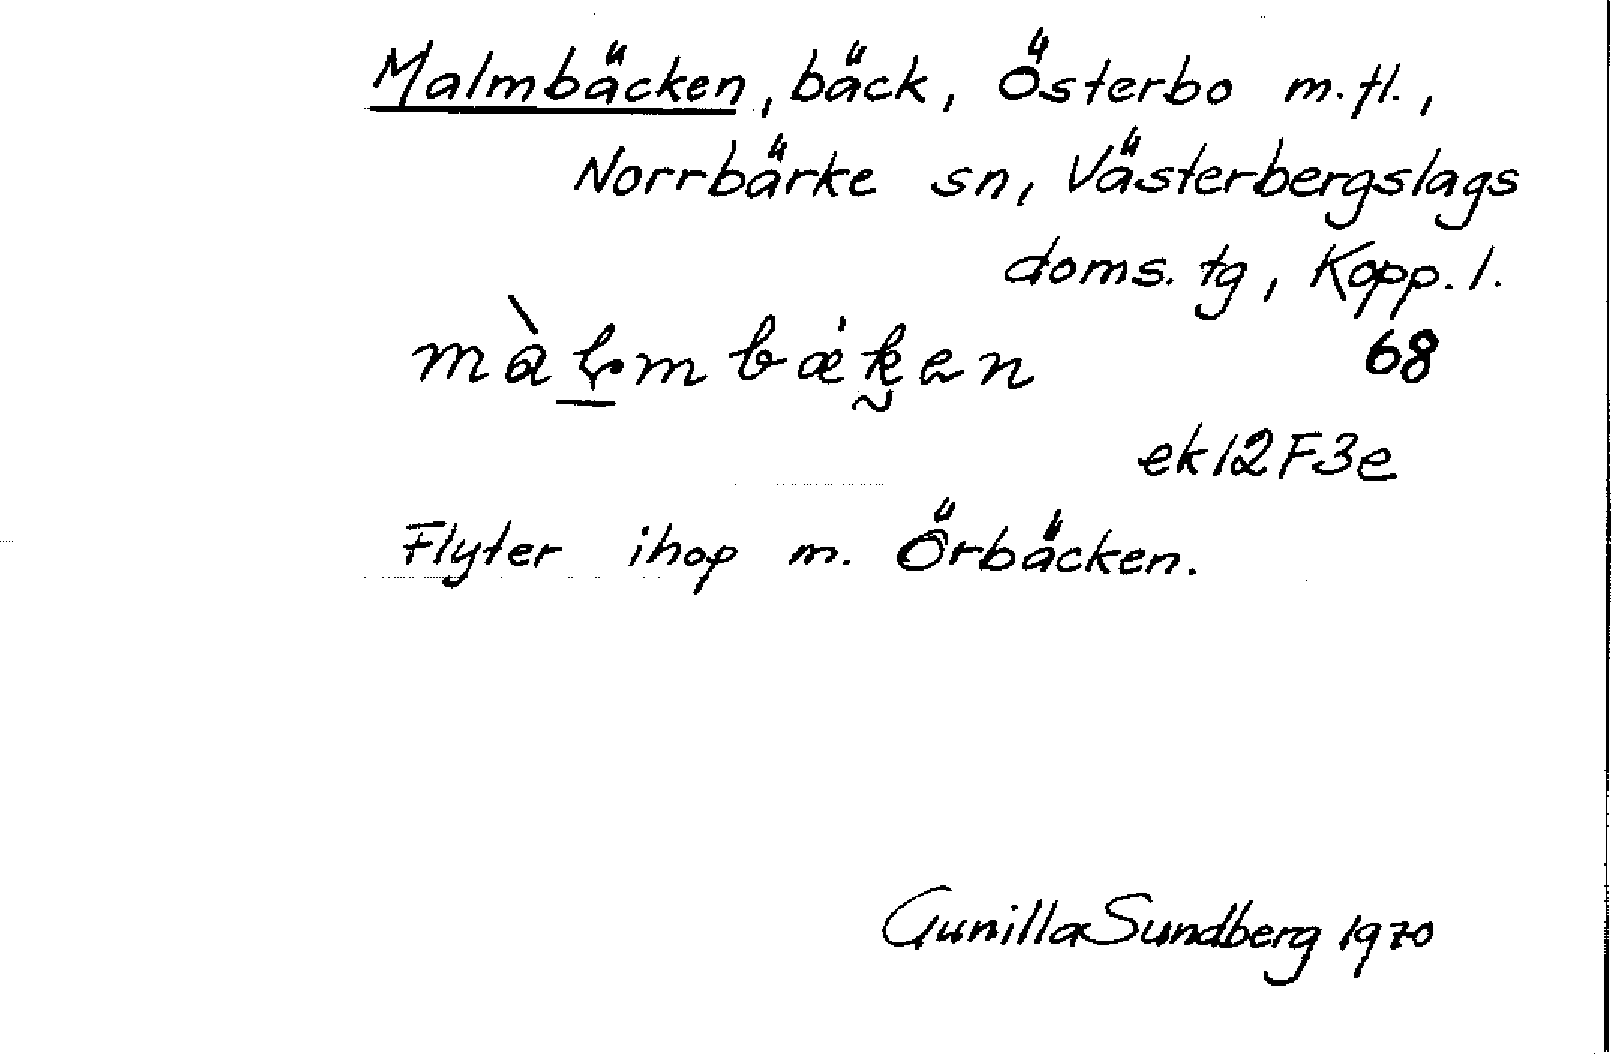 Malmbäcken, bäck, Österbo m.fl.,
Norrbärke sn, Västerbergslags
doms. tg, Kopp. l.
68
ek 12F3e
Flyter ihop m. Örbäcken.
Gunilla Sundberg 1970